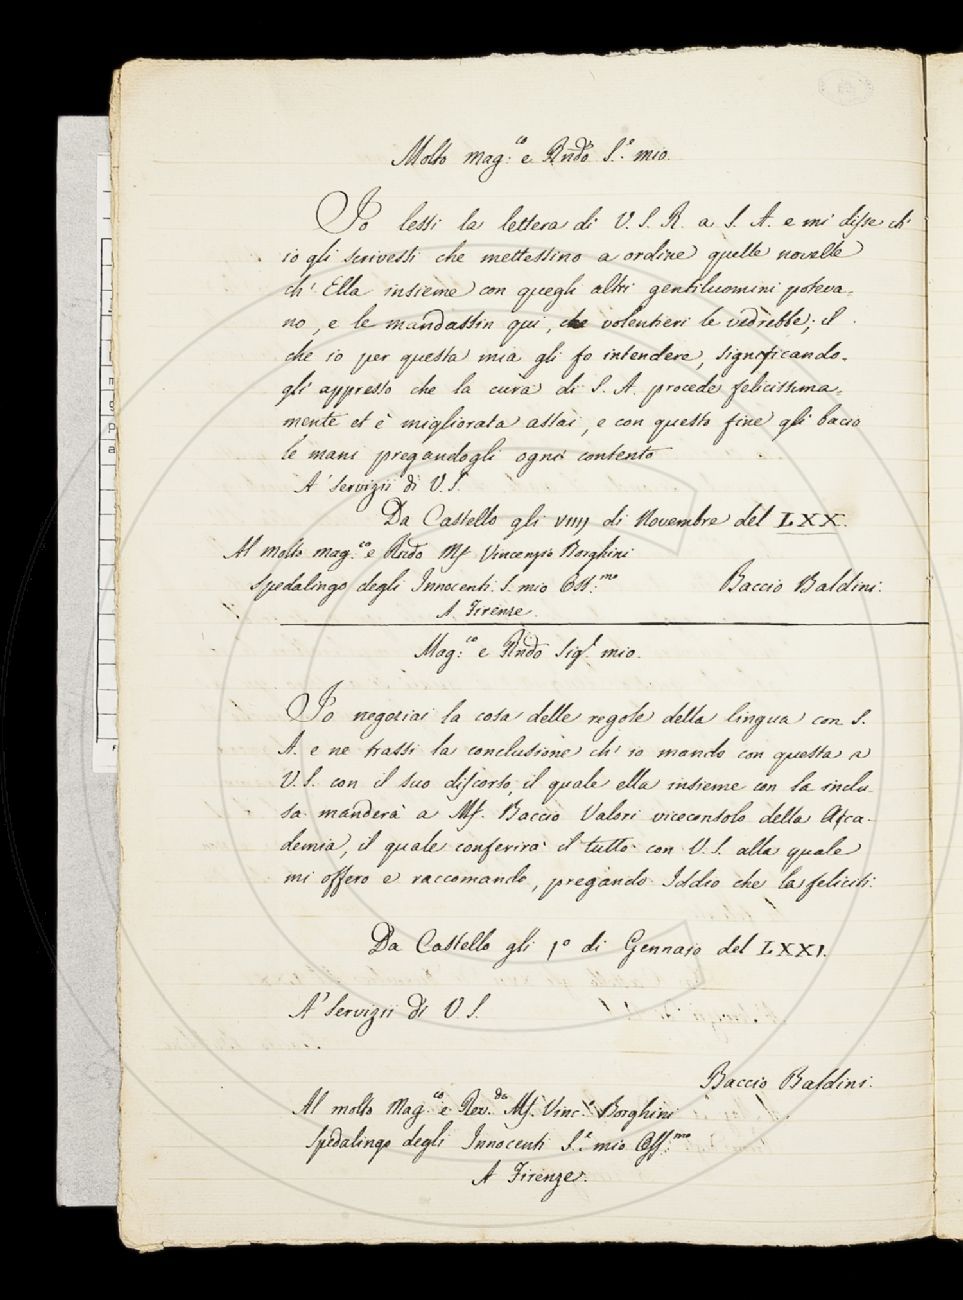 Molto mag:co e Rndo S.r mio
Io lessi la lettera di V. S. R. a S. A. e mi disse ch'
io gli scrivessi che mettessino a ordine quelle novelle
ch' Ella insieme con quegli altri gentiluomini poteva-
no, e le mandassin qui, che volentieri le vedrebbe; il
che io per questa mia gli fo intendere, significando-
gli appresso che la cura di S. A. procede felicissima-
mente et è migliorata assai, e con questo fine gli bacio
le mani pregandogli ogni contento
A' Servigii di V. S.
Da Castello gli VIIIJ di Novembre del LXX.
Al molto mag.co e Rndo Mf Vincenzio Borghini
Spedalingo degli Innocenti S. mio Oss.mo
Baccio Baldini.
A Firenze.
Mag:co e Rndo Sig.r mio.
Io negoziai la cosa delle regole della lingua con S.
A. e ne trassi la conclusione ch' io mando con questa a
V. S. con il suo discorso, il quale ella insieme con la inclu-
sa manderà a Mf. Baccio Valori viceconsolo della Acca-
demia, il quale conferirà il tutto con V. S. alla quale
mi offero e raccomando, pregando Iddio che la feliciti.
Da Castello gli 1o di Gennajo del LXXI.
A' Servigii di V. S.
Baccio Baldini.
Al molto Mag.co e Rev.do Mf. Vinc.o Borghini
Spedalingo degli Innocenti S.r mio Oss.mo
A Firenze.